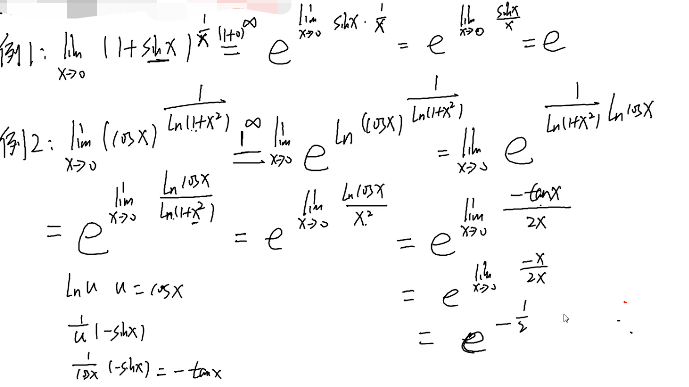 例1: lim_{x→0} (1+sinx)^{1/x} =^{(1+0)^∞} e^{lim_{x→0} sinx·1/x} = e^{lim_{x→0} sinx/x} = e
例2: lim_{x→0} (cosx)^{1/ln(1+x²)} =^{1^∞} lim_{x→0} e^{ln(cosx)^{1/ln(1+x²)}} = lim_{x→0} e^{1/ln(1+x²) lncosx}
= e^{lim_{x→0} lncosx/ln(1+x²)} = e^{lim_{x→0} lncosx/x²} = e^{lim_{x→0} -tanx/2x}
= e^{lim_{x→0} -x/2x}
= e^{-1/2}
lnu u=cosx
1/u (-sinx)
1/cosx (-sinx) = -tanx